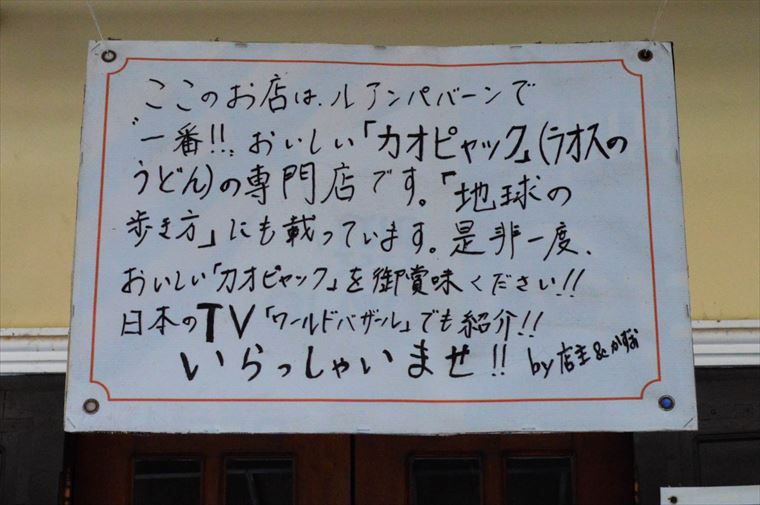 ここのお店は、ルアンパバーンで
"一番!!"おいしい「カオピャック」(ラオスの
うどん)の専門店です。「地球の
歩き方」にも載っています。是非一度、
おいしい「カオピャック」を御賞味ください!!
日本のTV「ワールドバザール」でも紹介!!
いらっしゃいませ!! by店主&かずお